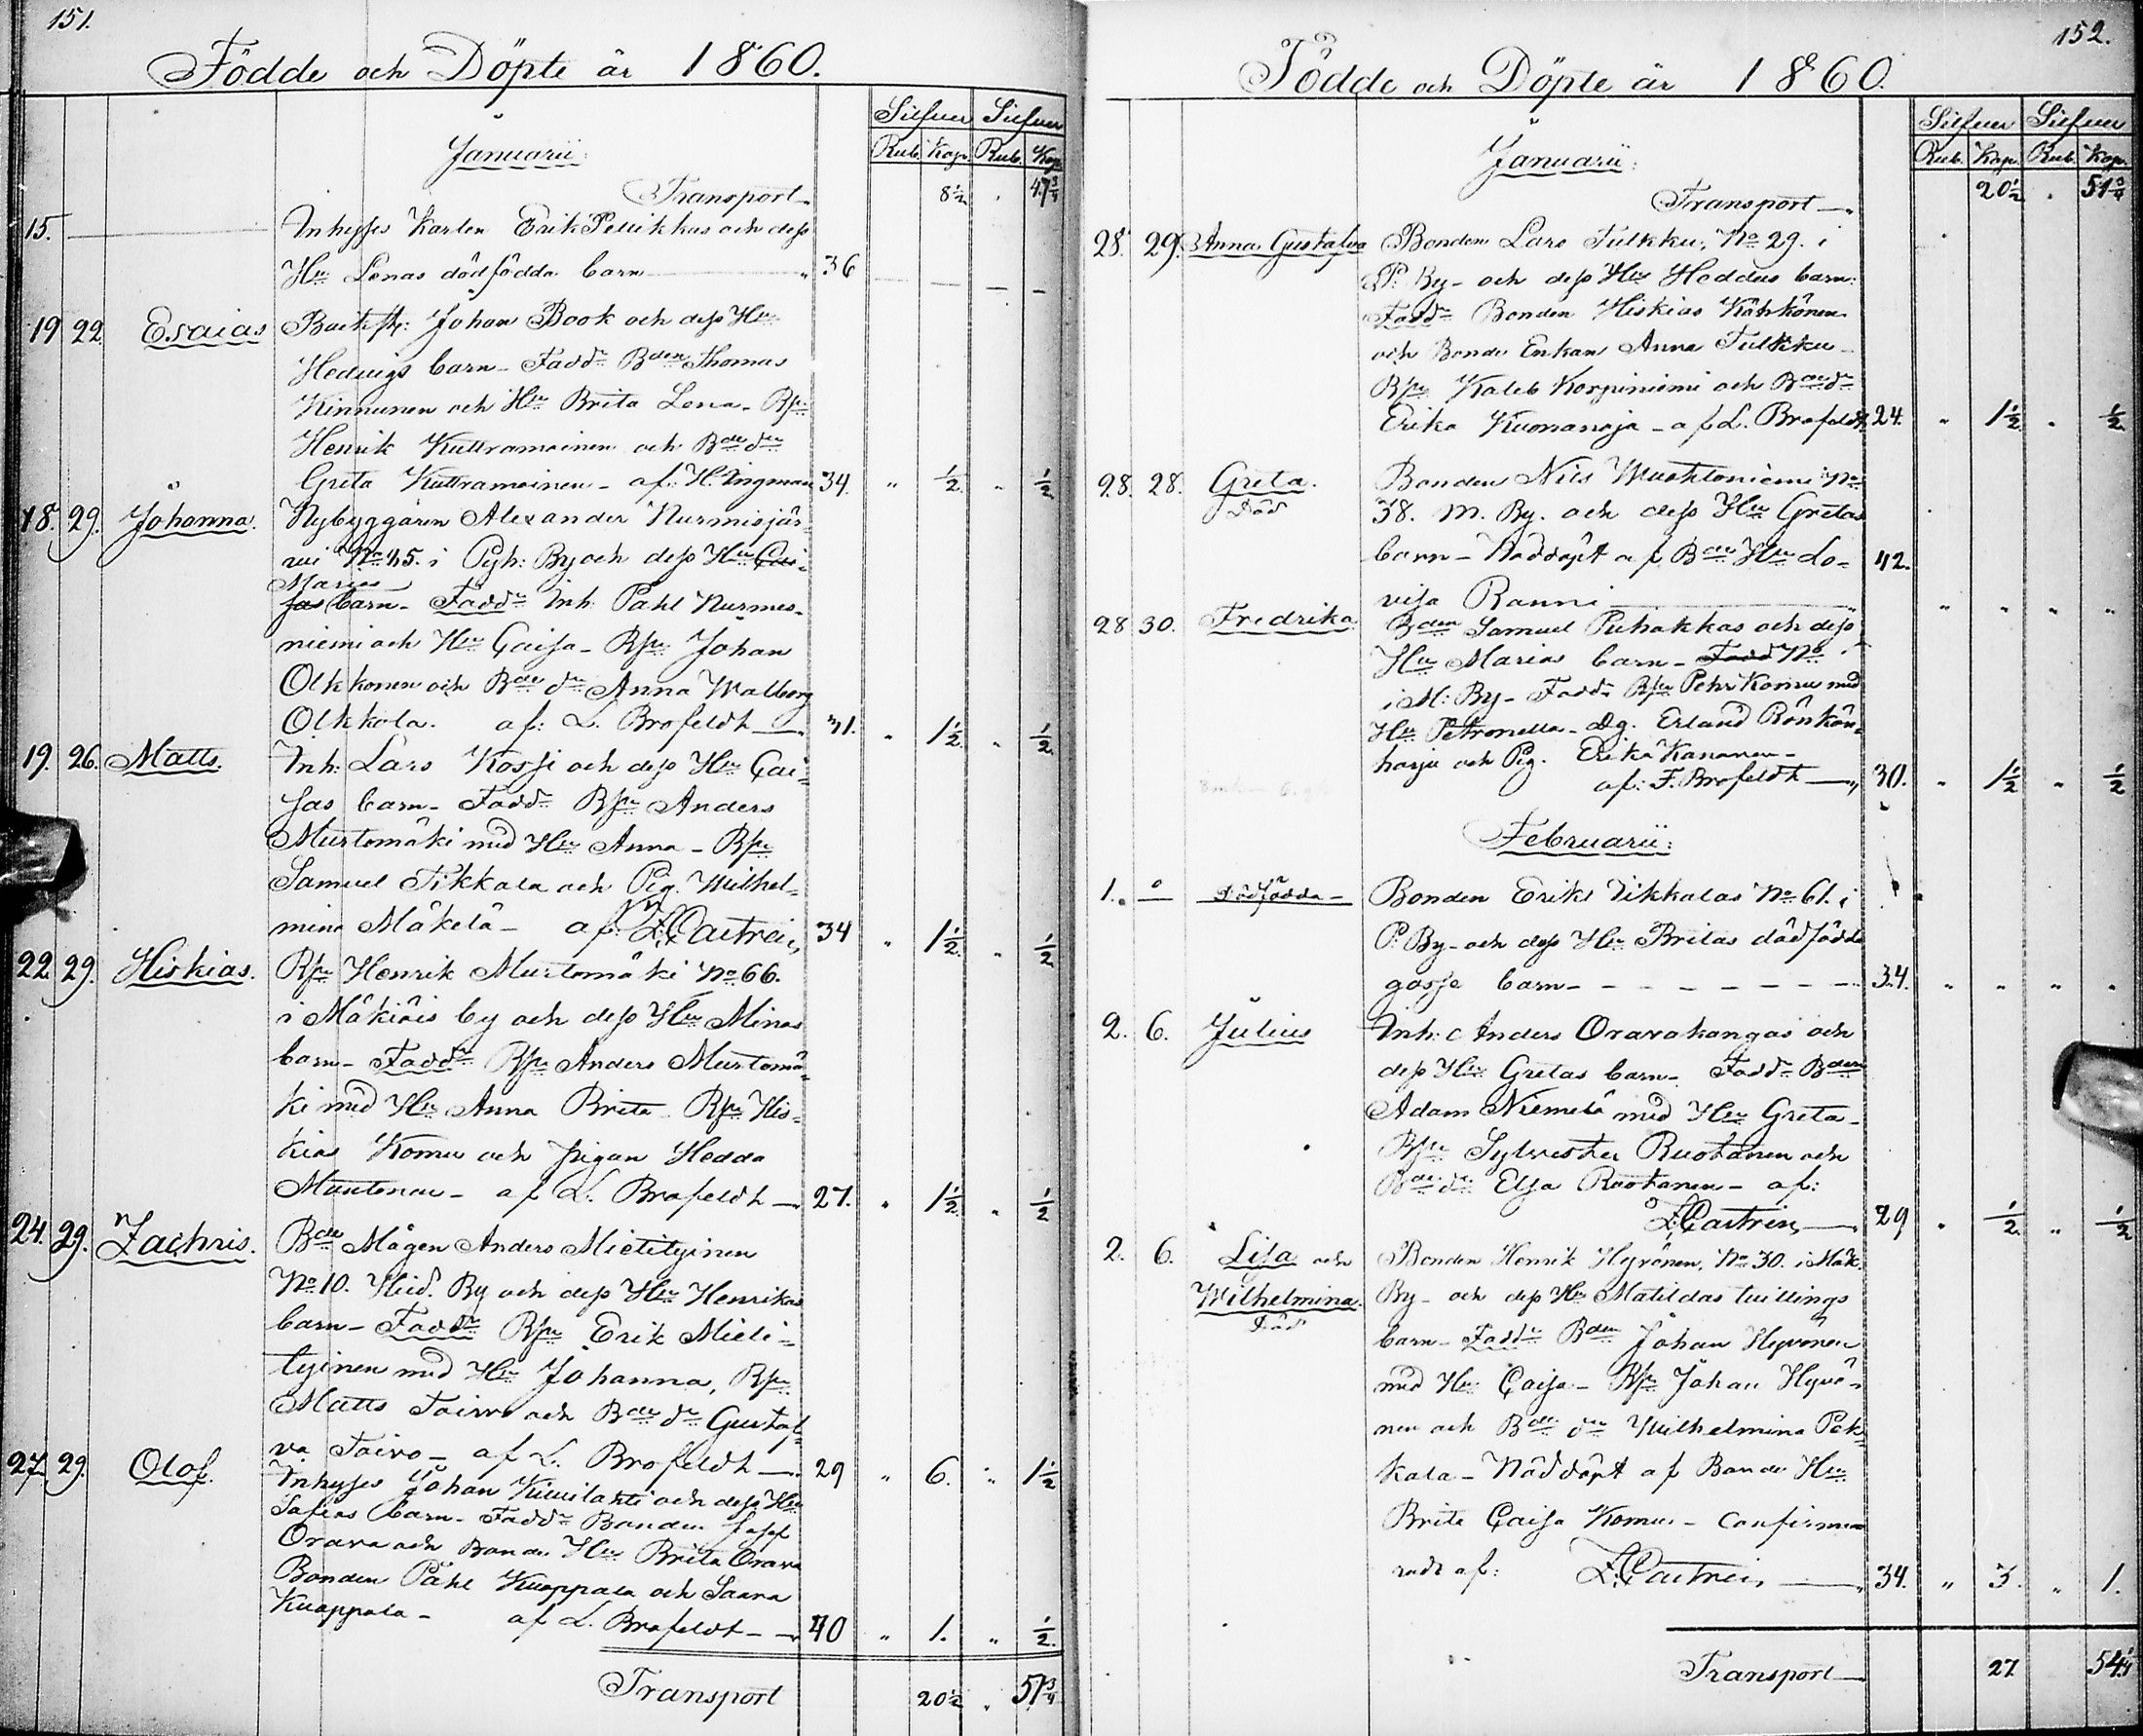 151.
Födde och Döpte år 1860.
Silfver Silfver
Januarii: Rub. Kop. Rub. Kop.
Transport 8½ " 47¾
15. Inhyses Karlen Erik Pellikkas och dess
Hu Lenas dödfödda barn " 36 — — — —
19 22. Esaias Backst: Johan Book och dess Hus
Hedvigs barn - Faddr Bden Thomas
Kinnunen och Hu Brita Lena - Bsn
Henrik Kuttramoinen och Bde dr
Greta Kuttramoinen - af: H. Ingman 34. " ½ " ½
18. 29. Johanna. Nybyggaren Alexander Nurmesjär-
vis No 45. i Pyh: By och dess Hu Cai-
Marias
sas barn - Faddr Inh. Påhl Nurmes-
niemi och Hu Caisa - Bsn Johan
Olkkonen och Bde dr Anna Walborg
Olkkola. af: L. Brofeldt 31. " 1½ " ½
19. 26. Matts. Inh: Lars Kossi och dess Hu Cai-
sas barn - Faddr Bsn Anders
Murtomäki med Hu Anna - Bsn
Samuel Tikkala och Pig. Wilhel-
mina Mäkelä - af: Z. Castrén, 34 " 1½ " ½
22 29. Hiskias. Bsn Henrik Murtomäki No 66.
i Mäkiäis by och dess Hu Minas
barn - Faddr Bsn Anders Murtomä-
ki med Hu Anna Brita - Bsn His-
kias Komu och pigan Hedda
Mantenen - af L. Brofeldt 27. " 1½ " ½
24. 29. Zachris. Bde Mågen Anders Mietityinen
No 10. Heid. By och dess Hu Henrikas
barn - Faddr Bsn Erik Mieti-
tyinen med Hu Johanna, Bsn
Matts Toivo och Bde dr Gustaf-
va Toivo - af L. Brofeldt 29 " 6. " 1½
27. 29. Olof. Inhyses Johan Kivilahti och dess Hu
Safias barn - Faddr Bonden Josef
Orava och Bonde Hu Brita Orava
Bonden Påhl Kuappala och Saara
Kuappala - af L. Brofeldt - 40 " 1. " ½
Transport 20½ " 51¾
152.
Födde och Döpte år 1860.
Silfver Silfver
Januarii: Rub. Kop. Rub. Kop.
Transport 20½ " 51¾
28. 29. Anna Gustafva Bonden Lars Tulkku, No 29. i
P. By - och dess Hu Heddas barn:
Faddr Bonden Hiskias Kähkönen
och Bonde Enkan Anna Tulkku -
Bsn Kaleb Korpiniemi och Bde dr
Erika Kuonanoja - af L. Brofeldt, 24. " 1½ " ½
28. 28. Greta. Bonden Nils Wuohtoniemi No
Död 38. M. By. och dess Hu Gretas
barn - Nöddöpt af Bde Hu Lo- 42.
visa Ranni " " " "
28 30. Fredrika Bden Samuel Puhakkas och dess
Hu Marias barn - Fadd No
i M: By - Faddr Bsn Pehr Komu med
Hu Petronella - Dg. Erland Rönkön-
harju och Pig. Erika Kananen -
af: F. Brofeldt 30. " 1½ " ½
Februarii:
1. — Dödfödda - Bonden Eriks Tikkalas No 61. i
P. By - och dess Hu Britas dödfödda
gosse barn - - - - - - - 34. " " " "
2. 6. Julius Inh: Anders Oravakangas och
dess Hu Gretas barn - Faddr Bden
Adam Niemelä med Hu Greta -
Bsn Sylvester Ruotanen och
Bde dr Elsa Ruotanen - af:
Z. Castrén, 29 " ½ " ½
2. 6. Lisa och Bonden Henrik Hyvönen, No 30. i Mäk.
Wilhelmina. By - och dess Hu Matildas tvillings
Död barn - Faddr Bden Johan Hyvönen
med Hu Caisa - Bsn Johan Hyvö-
nen och Bde dr Wilhelmina Pek-
kala - Nöddöpt af Bonde Hu
Brita Caisa Komu - confirme-
radt af: Z. Castrén, 34. " 3. " 1.
Transport 27 54¼